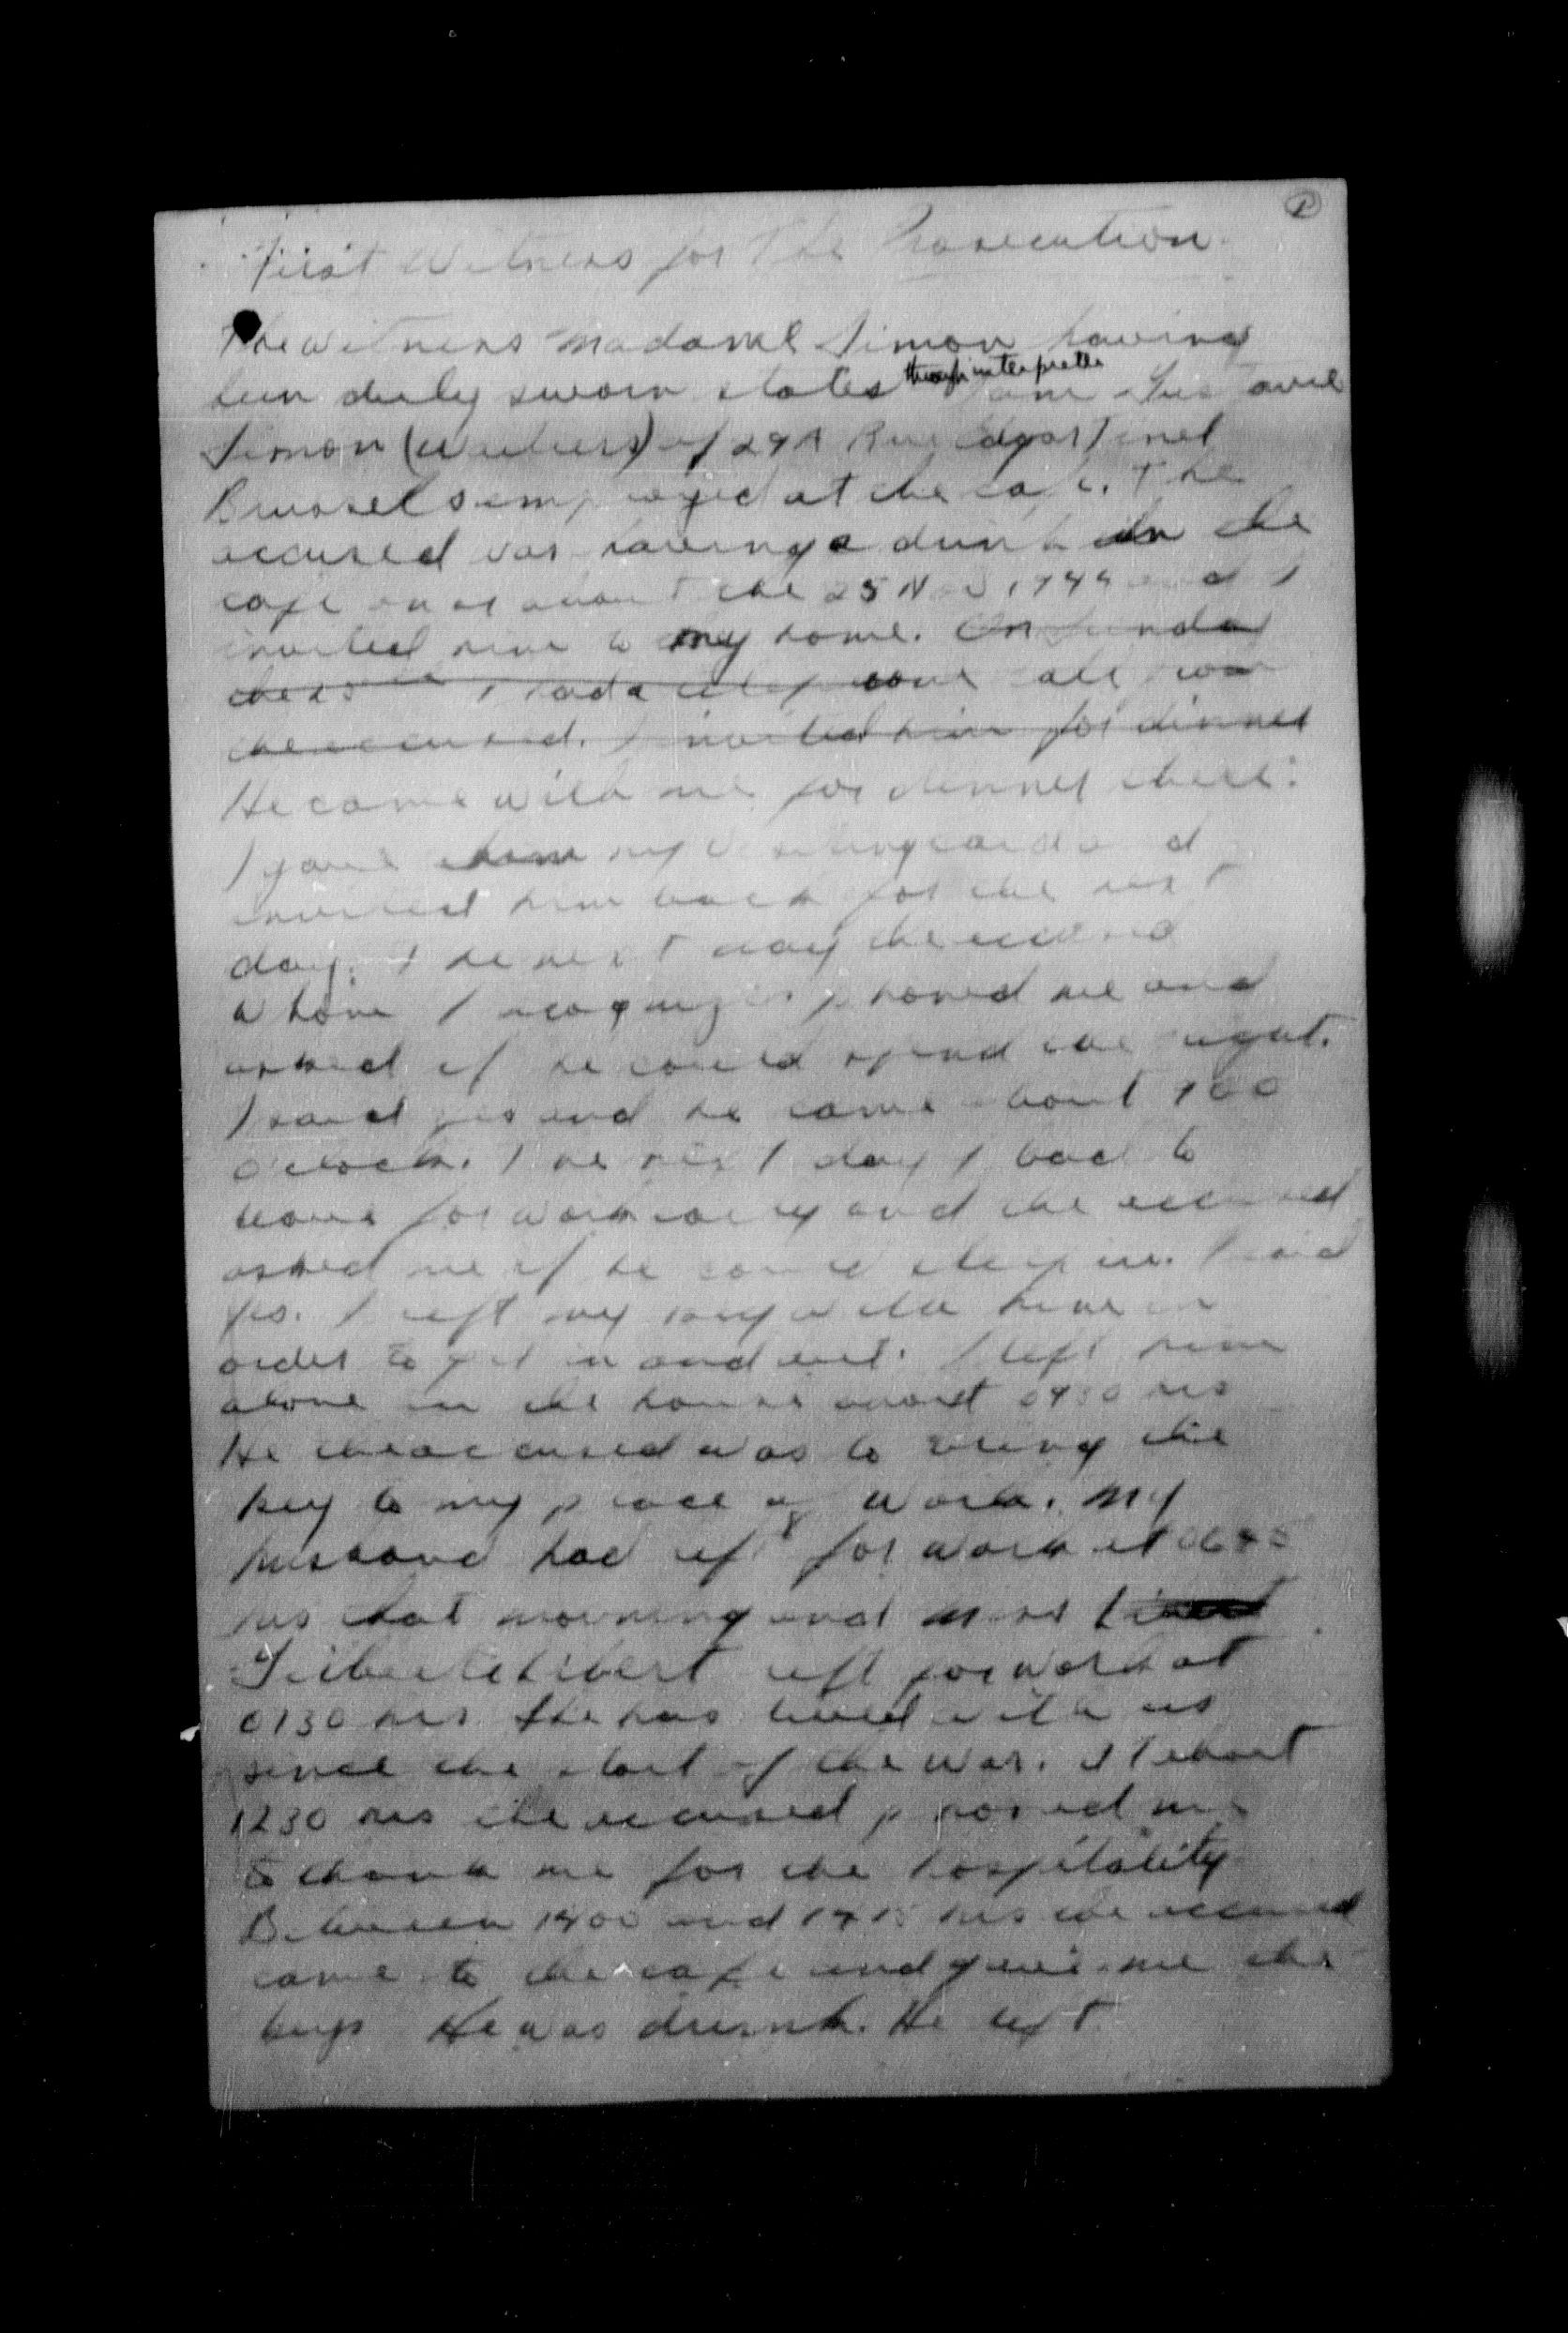 1
First Witness for The Prosecution.
The witness Madame Simon having
been duly sworn states through interpretter I am
Simon of 29A Rue Edgar Tinel
Brussels employed at the cafe. The
accused was having a drink in the
cafe on or about the 25 Nov 1944 and I
invited him to my home. On Sunday
the 25th I had a telephone call from
the accused. I invited him for dinner
He came with me for dinner there.
I gave him my visiting card and
invited him back for the next
day. The next day the accused
whom I recognize phoned me and
asked if he could spend the night.
I said yes and he came about
o'clock. The next day I had to
leave for work early and the accused
asked me if he could sleep in. I said
yes. I left my key with him in
order to get in and out. I left him
alone in the house about hrs
He the accused was to bring the
key to my place of work. My
husband had left for work at
hrs that morning and
left for work at
0730 hrs. She has lived with us
since the start of the war. At about
1230 hrs the accused phoned me
to thank me for the hospitality
Between 1400 and 1415 hrs the accused
came to the cafe and gave me the
keys He was drunk. He left